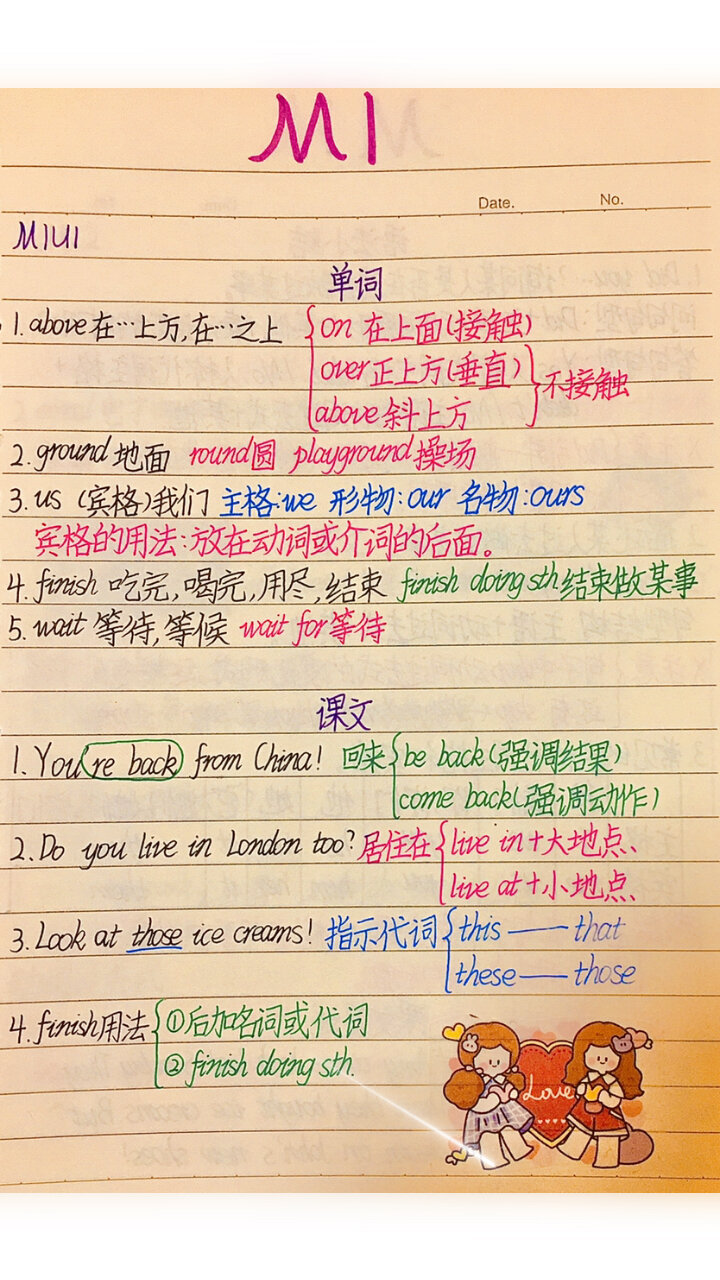 M1
Date. No.
M1U1
单词
1. above 在…上方,在…之上 on 在上面(接触)
over 正上方(垂直)
above 斜上方
不接触
2. ground 地面 round圆 playground操场
3. us (宾格)我们 主格:we 形物:our 名物:ours
宾格的用法:放在动词或介词的后面。
4. finish 吃完,喝完,用尽,结束 finish doing sth结束做某事
5. wait 等待,等候 wait for等待
课文
1. You're back from China! 回来 be back(强调结果)
come back(强调动作)
2. Do you live in London too? 居住在 live in+大地点、
live at+小地点、
3. Look at those ice creams! 指示代词 this——that
these——those
4. finish用法 ①后加名词或代词
② finish doing sth.
Love